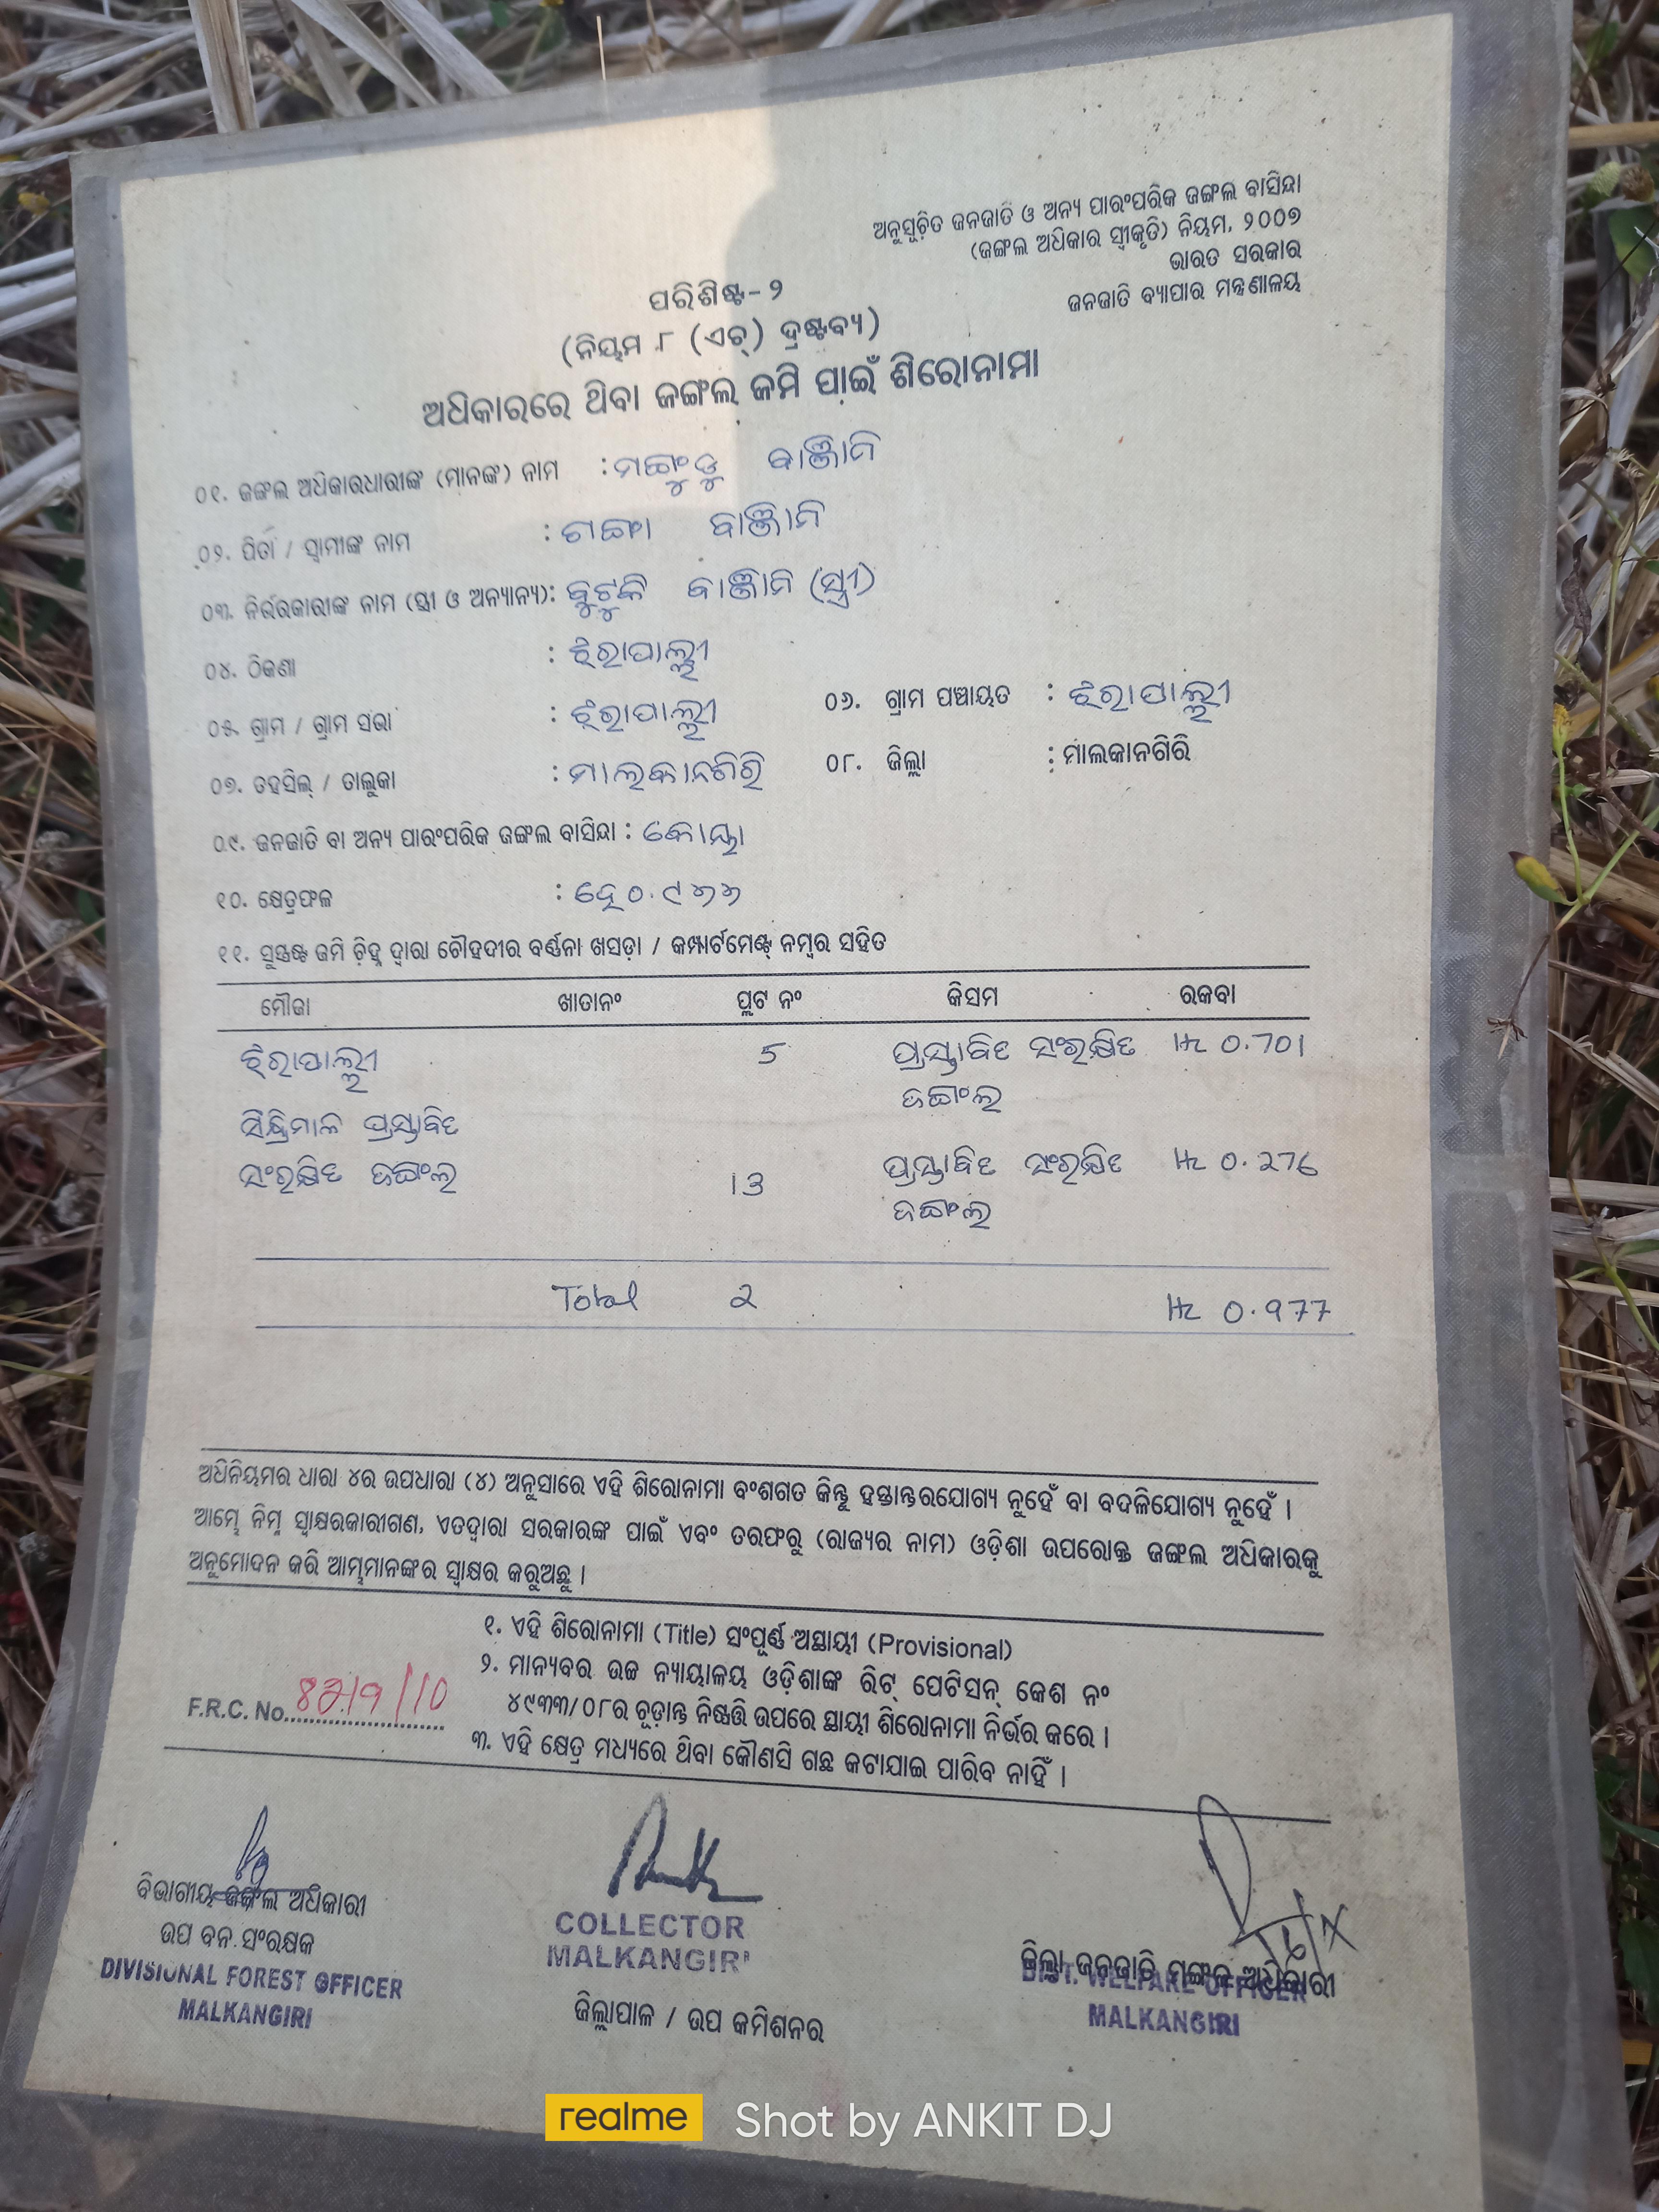 ଅନୁସୂଚିତ ଜନଜାତି ଓ ଅନ୍ୟ ପାରଂପରିକ ଜଙ୍ଗଲ ବାସିନ୍ଦା
(ଜଙ୍ଗଲ ଅଧିକାର ସ୍ୱୀକୃତି) ନିୟମ, ୨୦୦୭
ଭାରତ ସରକାର
ଜନଜାତି ବ୍ୟାପାର ମନ୍ତ୍ରଣାଳୟ
ପରିଶିଷ୍ଟ-୨
(ନିୟମ ୮ (ଏଚ୍) ଦ୍ରଷ୍ଟବ୍ୟ)
ଅଧିକାରରେ ଥିବା ଜଙ୍ଗଲ ଜମି ପାଇଁ ଶିରୋନାମା
୦୧. ଜଙ୍ଗଲ ଅଧିକାରଧାରୀଙ୍କ (ମାନଙ୍କ) ନାମ :
୦୨. ପିତା / ସ୍ୱାମୀଙ୍କ ନାମ :
୦୩. ନିର୍ଭରକାରୀଙ୍କ ନାମ (ସ୍ତ୍ରୀ ଓ ଅନ୍ୟାନ୍ୟ): (ସ୍ତ୍ରୀ)
୦୪. ଠିକଣା : ଝିରାପାଲ୍ଲୀ
୦୫. ଗ୍ରାମ / ଗ୍ରାମ ସଭା : ଝିରାପାଲ୍ଲୀ ୦୬. ଗ୍ରାମ ପଞ୍ଚାୟତ : ଝିରାପାଲ୍ଲୀ
୦୭. ତହସିଲ୍ / ତାଲୁକା : ମାଲକାନଗିରି ୦୮. ଜିଲ୍ଲା : ମାଲକାନଗିରି
୦୯. ଜନଜାତି ବା ଅନ୍ୟ ପାରଂପରିକ ଜଙ୍ଗଲ ବାସିନ୍ଦା : କୋୟା
୧୦. କ୍ଷେତ୍ରଫଳ : ହେ ୦.୯୭୭
୧୧. ସୁସ୍ପଷ୍ଟ ଜମି ଚିହ୍ନ ଦ୍ୱାରା ଚୌହଦୀର ବର୍ଣ୍ଣନା ଖସଡ଼ା / କମ୍ପାର୍ଟମେଣ୍ଟ୍ ନମ୍ବର ସହିତ
ମୌଜା ଖାତାନଂ ପ୍ଲଟ ନଂ କିସମ ରକବା
ଝିରାପାଲ୍ଲୀ 5 ପ୍ରସ୍ତାବିତ ସଂରକ୍ଷିତ Hc 0.701
ଜଙ୍ଗଲ
ପ୍ରସ୍ତାବିତ
ସଂରକ୍ଷିତ ଜଙ୍ଗଲ 13 ପ୍ରସ୍ତାବିତ ସଂରକ୍ଷିତ Hc 0.276
ଜଙ୍ଗଲ
Total 2 Hc 0.977
ଅଧିନିୟମର ଧାରା ୪ର ଉପଧାରା (୪) ଅନୁସାରେ ଏହି ଶିରୋନାମା ବଂଶଗତ କିନ୍ତୁ ହସ୍ତାନ୍ତରଯୋଗ୍ୟ ନୁହେଁ ବା ବଦଳିଯୋଗ୍ୟ ନୁହେଁ ।
ଆମ୍ଭେ ନିମ୍ନ ସ୍ୱାକ୍ଷରକାରୀଗଣ, ଏତଦ୍ୱାରା ସରକାରଙ୍କ ପାଇଁ ଏବଂ ତରଫରୁ (ରାଜ୍ୟର ନାମ) ଓଡ଼ିଶା ଉପରୋକ୍ତ ଜଙ୍ଗଲ ଅଧିକାରକୁ
ଅନୁମୋଦନ କରି ଆମ୍ଭମାନଙ୍କର ସ୍ୱାକ୍ଷର କରୁଅଛୁ ।
୧. ଏହି ଶିରୋନାମା (Title) ସଂପୂର୍ଣ୍ଣ ଅସ୍ଥାୟୀ (Provisional)
୨. ମାନ୍ୟବର ଉଚ୍ଚ ନ୍ୟାୟାଳୟ ଓଡ଼ିଶାଙ୍କ ରିଟ୍ ପେଟିସନ୍ କେଶ ନଂ
୪୯୩୩/୦୮ର ଚୂଡ଼ାନ୍ତ ନିଷ୍ପତ୍ତି ଉପରେ ସ୍ଥାୟୀ ଶିରୋନାମା ନିର୍ଭର କରେ ।
୩. ଏହି କ୍ଷେତ୍ର ମଧ୍ୟରେ ଥିବା କୌଣସି ଗଛ କଟାଯାଇ ପାରିବ ନାହିଁ ।
F.R.C. No.
ବିଭାଗୀୟ ଜଙ୍ଗଲ ଅଧିକାରୀ
ଉପ ବନ ସଂରକ୍ଷକ
DIVISIONAL FOREST OFFICER
MALKANGIRI
COLLECTOR
MALKANGIRI
ଜିଲ୍ଲାପାଳ / ଉପ କମିଶନର
ଜିଲ୍ଲା ଜନଜାତି ମଙ୍ଗଳ ଅଧିକାରୀ
DIST. WELFARE OFFICER
MALKANGIRI
realme Shot by ANKIT DJ